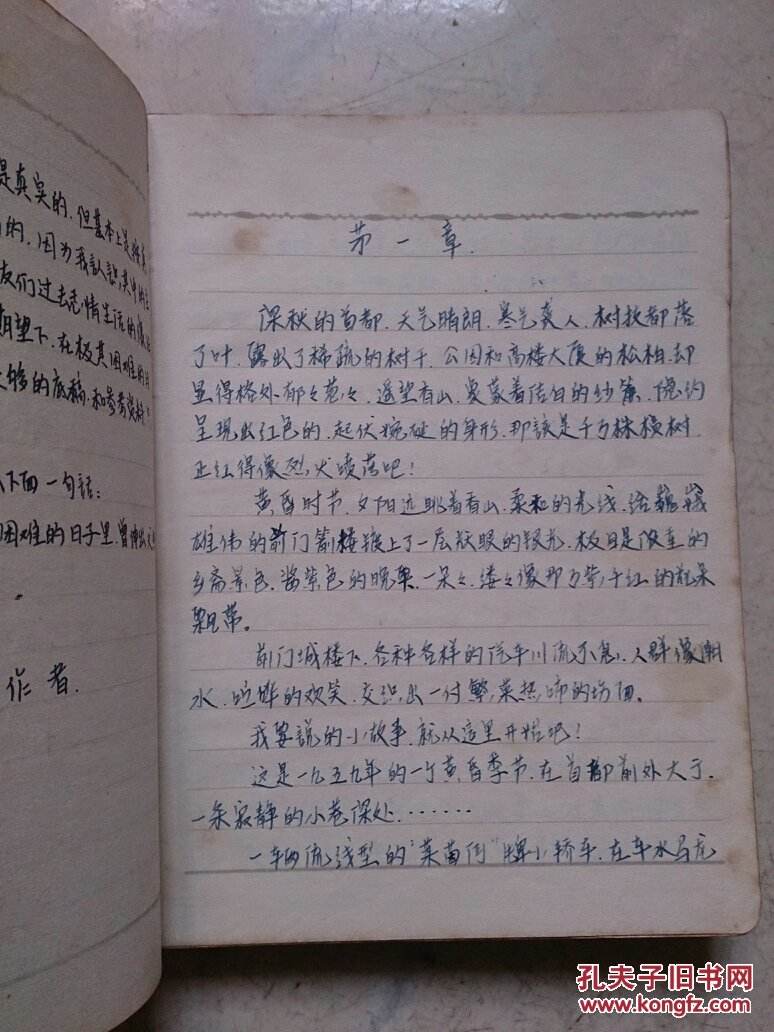 是真实的，但基本上是
的，因为我认识其中的
友们过去恋情生活的
期望下，在极其困难的
够的底稿和参考资料
下面一句話：
困难的日子里，曾
作者．
第一章．
深秋的首都，天气晴朗，寒气袭人，树枝都落
了叶，露出了稀疏的树干，公园和高楼大厦的松柏，却
显得格外郁々苍々，遥望香山，蒙着洁白的纱，隐约
呈现出红色的，起伏蜿蜒的身形，那該是千万株横树，
正红得像烈火喷荡吧！
黄昏时节，夕阳远眺着香山，柔和的光线，给巍峨
雄伟的前门箭楼披上了一层耀眼的银光，极目是浓重的
乡斋景色，酱紫色的晚架，一朵々，缕々像那万紫千红的花朵
飘带。
前门城楼下，各种各样的汽车川流不息，人群像潮
水，喧哗的欢笑，交织出一付繁荣热闹的场面。
我要説的小故事，就从这里开始吧！
这是一九五九年的一个黄昏季节，在首都前外大于，
一条寂静的小巷深处．．．．．．
一辆流线型的“莱茵河”牌小轿车，在车水马龙
孔夫子旧书网
www.kongfz.com